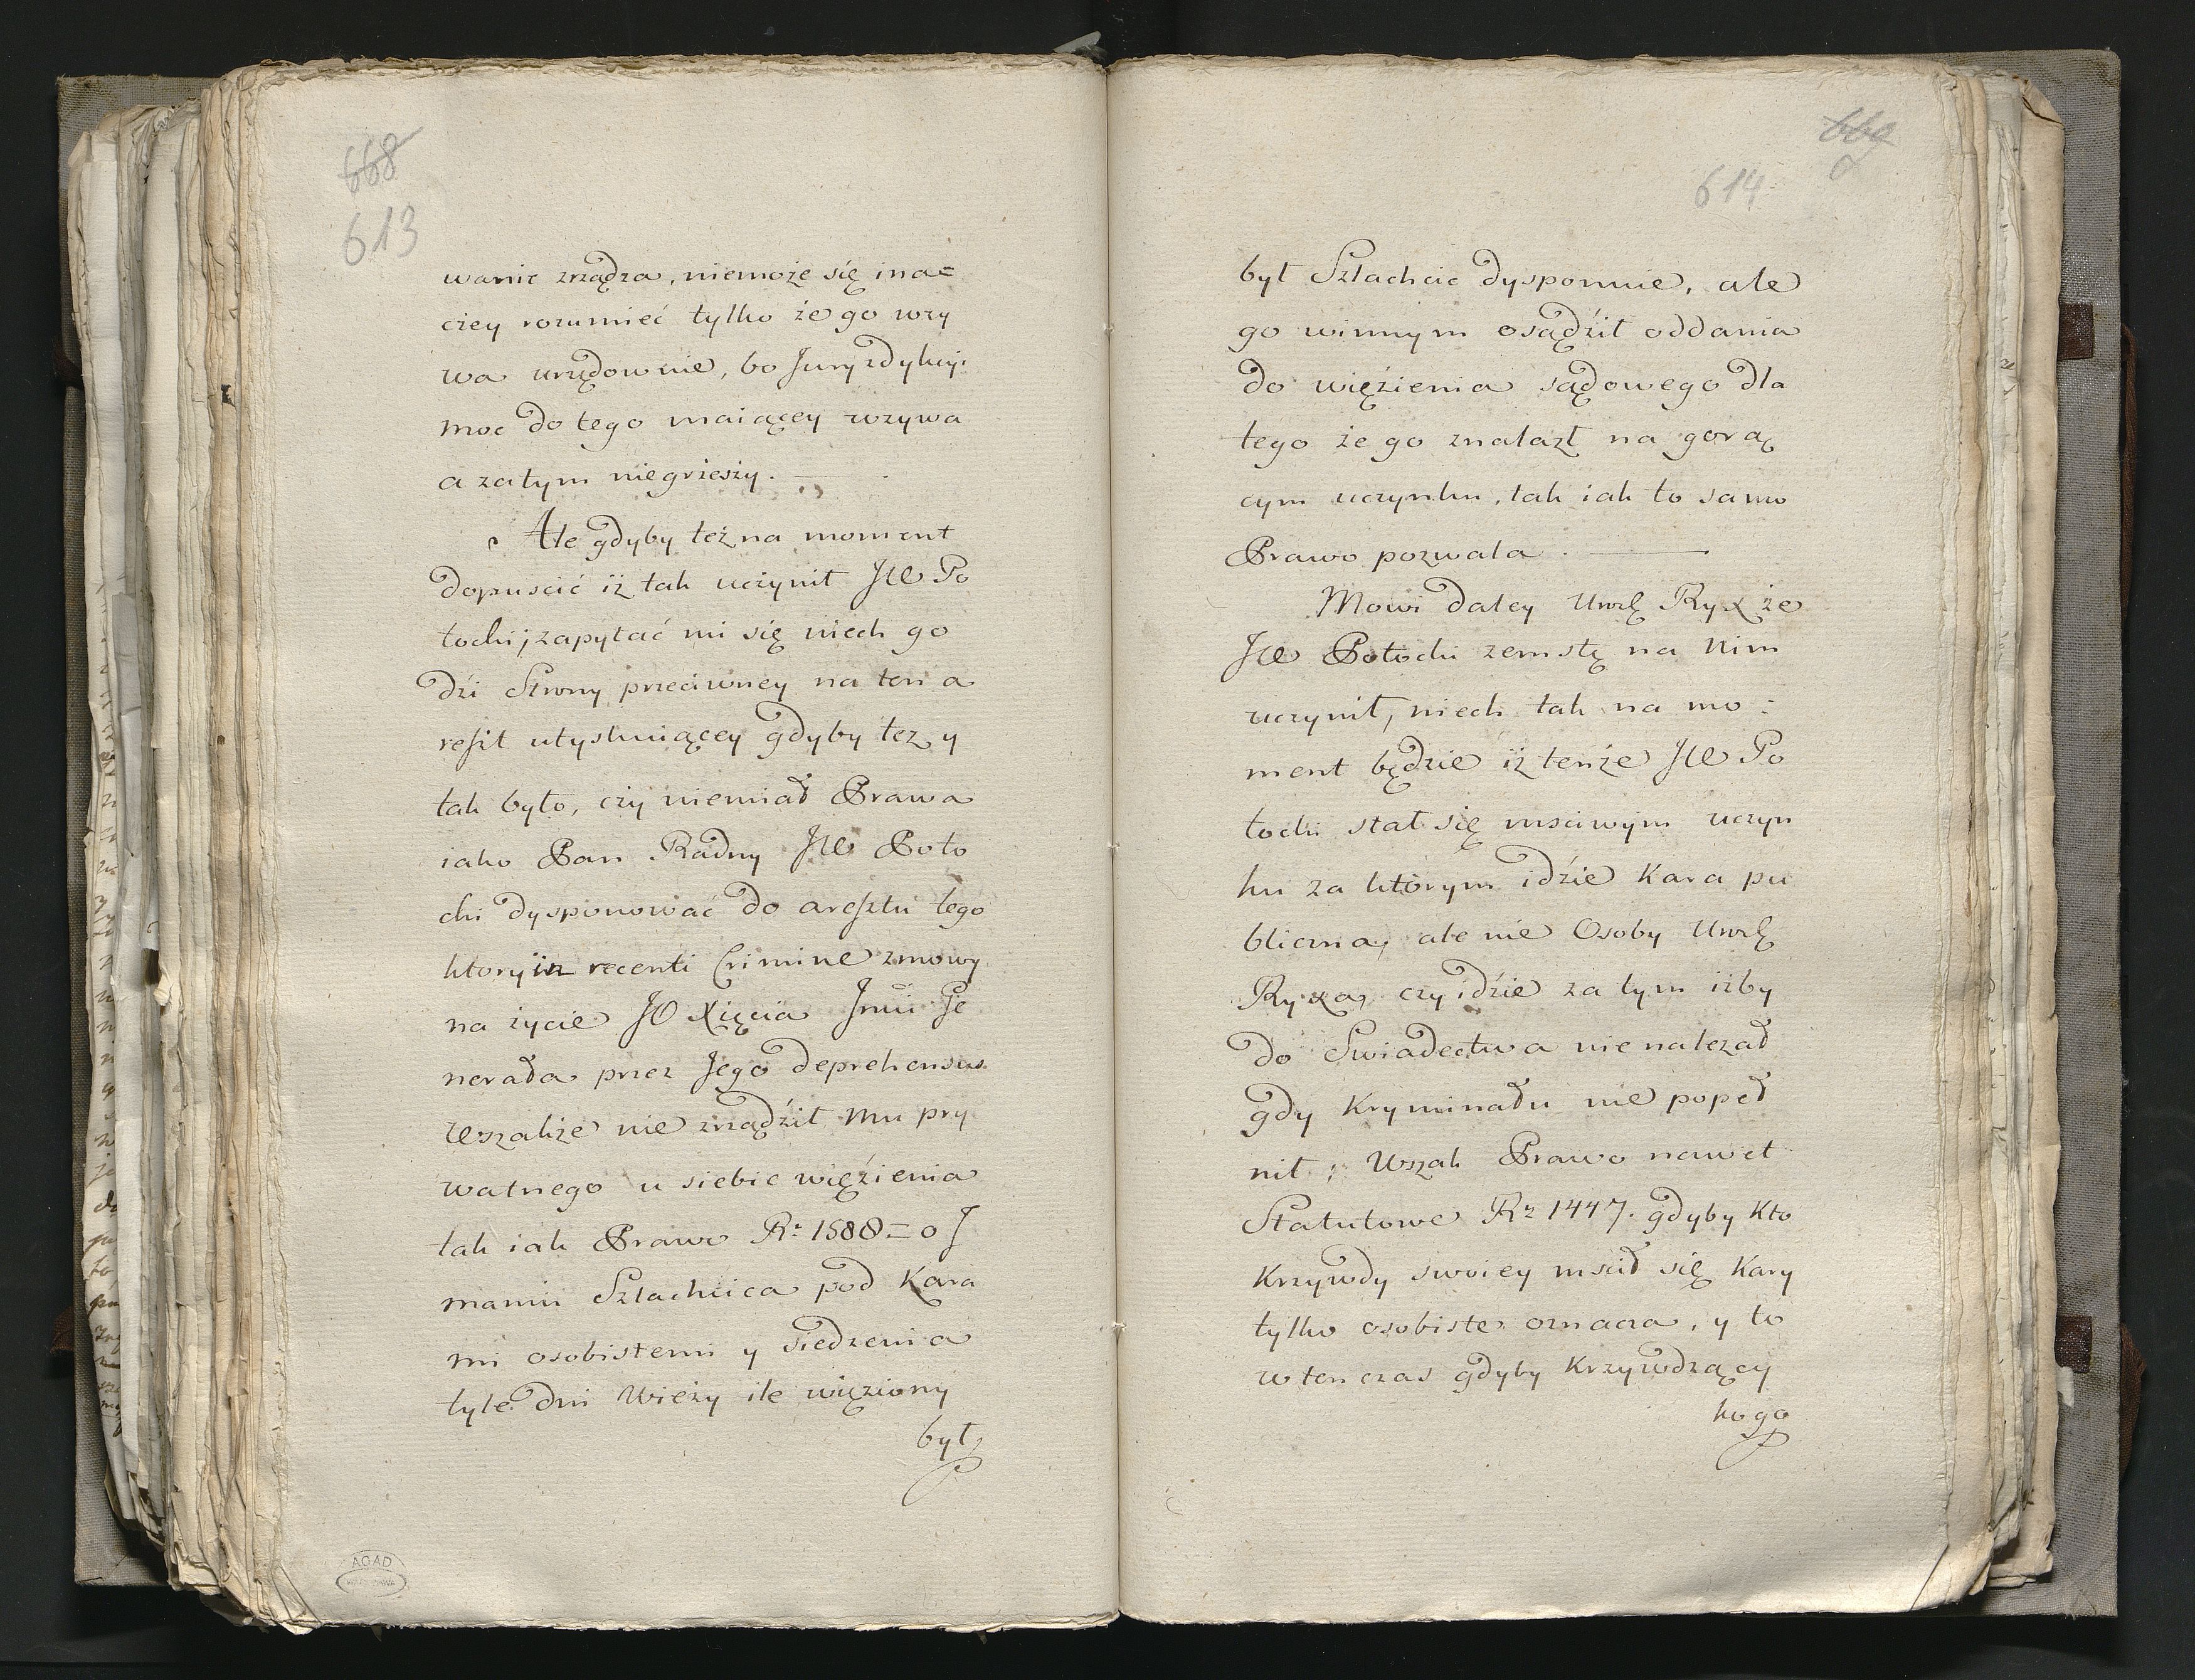 668
613
wanie zrządza, niemoże się ina=
czey rozumieć tylko że go wzy
wa urzędownie, bo Juryzdykcyi
moc do tego maiącey wzywa
a zatym niegrzeszy.
Ale gdyby też na moment
dopuscić iż tak uczynił JW Po
tocki, zapytać mi się niech go
dzi Strony przeciwney na ten a
reszt utyskuiącey gdyby tez y
tak było, czy niemiał Prawa
iako Pan Radny JW Poto
cki dysponować do aresztu tego
ktory in recenti Crimine zmowy
na życie JO Xięcia Jmci Je
nerała przez Jego deprehensus
Wszakże nie zrządził mu pry
watnego u siebie więzienia
tak iak Prawo R: 1588 = o J
maniu Szlachcica pod Kara
mi osobistemi y siedzenia
tyle dni Wieży ile więziony
był
AGAD
669
614
był Szlachcic dysponuie, ale
go winnym osądził oddania
do więzienia sądowego dla
tego że go znalazł na gorą
cym uczynku, tak iak to samo
Prawo pozwala.
Mowi daley Urzę Ryx że
JW Potocki zemstę na Nim
uczynił, niech tak na mo:
ment będzie iż tenże JW Po
tocki stał się msciwym uczyn
ku za ktòrym idzie Kara pu
bliczna, ale nie Osoby Urzę
Ryxa, czy idzie za tym iżby
do Swiadectwa nie nalezał
gdy Kryminału nie popeł
nił; Wszak Prawo nawet
Statutowe Rz 1447. gdyby Kto
Krzywdy swoiey mscił się Kary
tylko osobiste oznacza, y to
w ten czas gdyby Krzywdzący
kogo